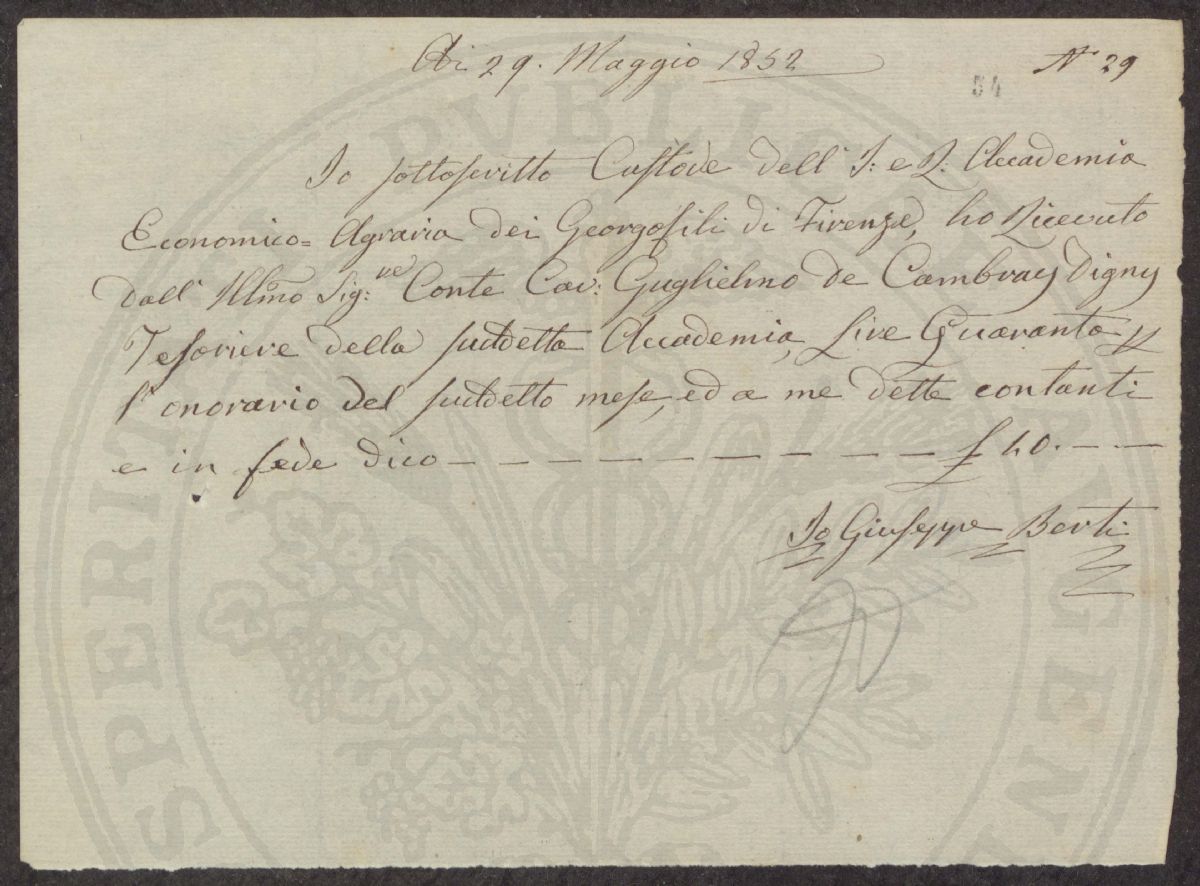 Adi 29. Maggio 1852 N° 29
54
Io sottoscritto Custode dell' I: e R: Accademia
Economico=Agraria dei Georgofili di Firenze, ho Ricevuto
dall' Illmo Sig:re Conte Cav: Guglielmo de Cambray Digny
Tesoriere della suddetta Accademia, Lire Quaranta p
l'onorario del suddetto mese, ed a me dette contanti
e in fede dico — — — — — — — — — £ 40. — —
Io Giuseppe Berti
PROSPERITATI PVBLICAE AVGENDAE